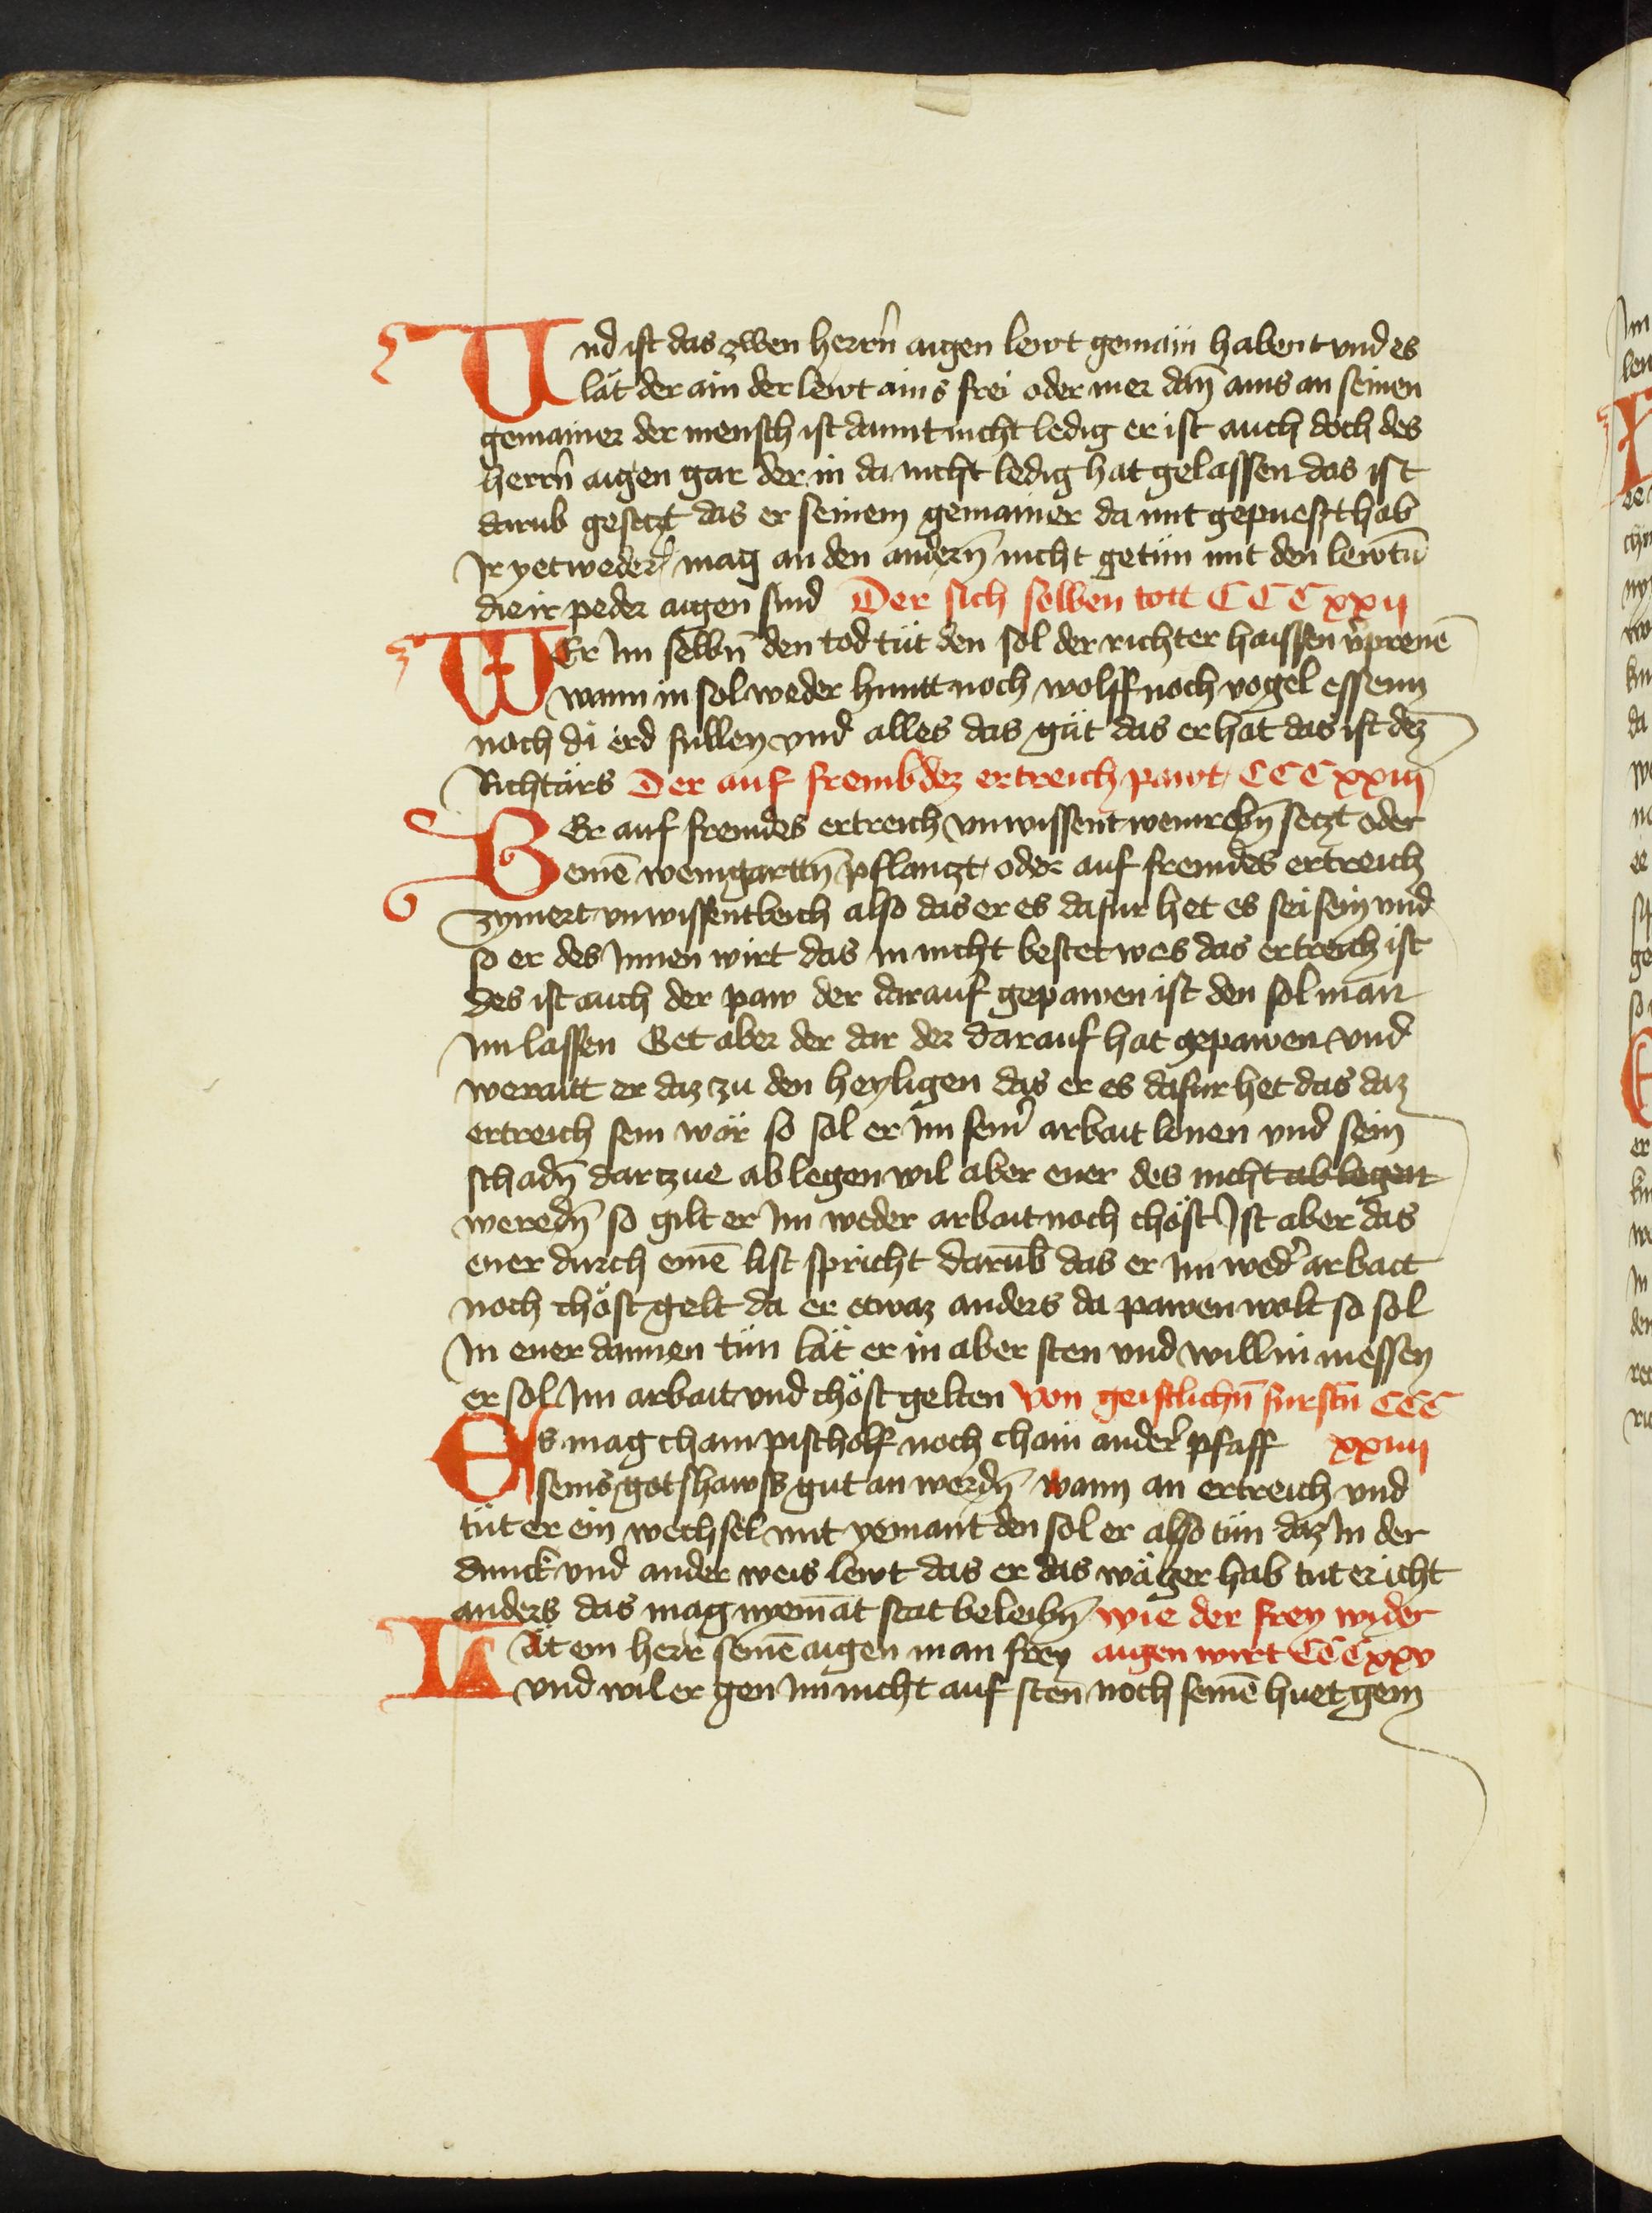 Und ist das zwen herrn̄ aigen lewt gemain habent vnd es
lät der ain der lewt ains frei oder mer dan̄ ains an seinen
gemainer der mensch ist damit nicht ledig er ist auch doch des
herrn̄ aigen gar der in da nicht ledig hat gelassen das ist
darub gesetzt das er seinem gemainer da mit gepuest hab
Ir yetweder mag an den andern̄ nicht getün mit den lewtn̄
die ir peder aigen sind Der sich selben tott CCCxxii
WEr im selbn̄ den tod tüt den sol der richter haissen v̓prenē
wann in sol weder huntt noch wolff noch vogel essenn
noch di erd fullen vnd alles das güt das er hat das ist dez
Richtärs Der auf frembdez ertreich pawt CCCxxiii
BEr auf fremdes ertreich vnwissent weinrebn̄ setzt oder
einē weingarttn̄ pflanczt oder auf fremdes ertreich
zymert vnwissentleich also das er es dafur het es sei sein vnd
so er des Innen wirt das in nicht bestet wes das ertreich ist
des ist auch der paw der darauf gepawen ist den sol man
im lassen Get aber der dar der darauf hat gepawen vnd
weraitt er daz zu den heyligen das er es dafur het das daz
ertreich sein wär so sol er im sein̓ arbait lonen vnd sein
schadn̄ dartzue ab legen wil aber ener des nicht ab legen
weredn̄ so gilt er im weder arbait noch chöst Ist aber das
ener durch einē list spricht darub̄ das er im wed̓ arbait
noch chöst gelt da er etwaz anders da pawen wolt so sol
In ener dannen tün lät er in aber sten vnd will in niessen
er sol im arbait vnd chöst gelten Von geistlichn̄ furstn̄ CCC
Es mag chain pischolf noch chain ander̓ pfaff xxiiii
seins gotshawss gut an werdn̄ wann an ertreich vnd
tüt er ein wechsel mit yemant den sol er also tün daz In der
dunck vnd ander weis lewt das er das wäger hab tut er icht
anders das mag nyemāt stat beleibn̄ wie der frey wider
LÄt ein herr seinē aigen man frey aigen wirt CCCxxv
vnd wil er gen im nicht auf sten noch seinē huet gein